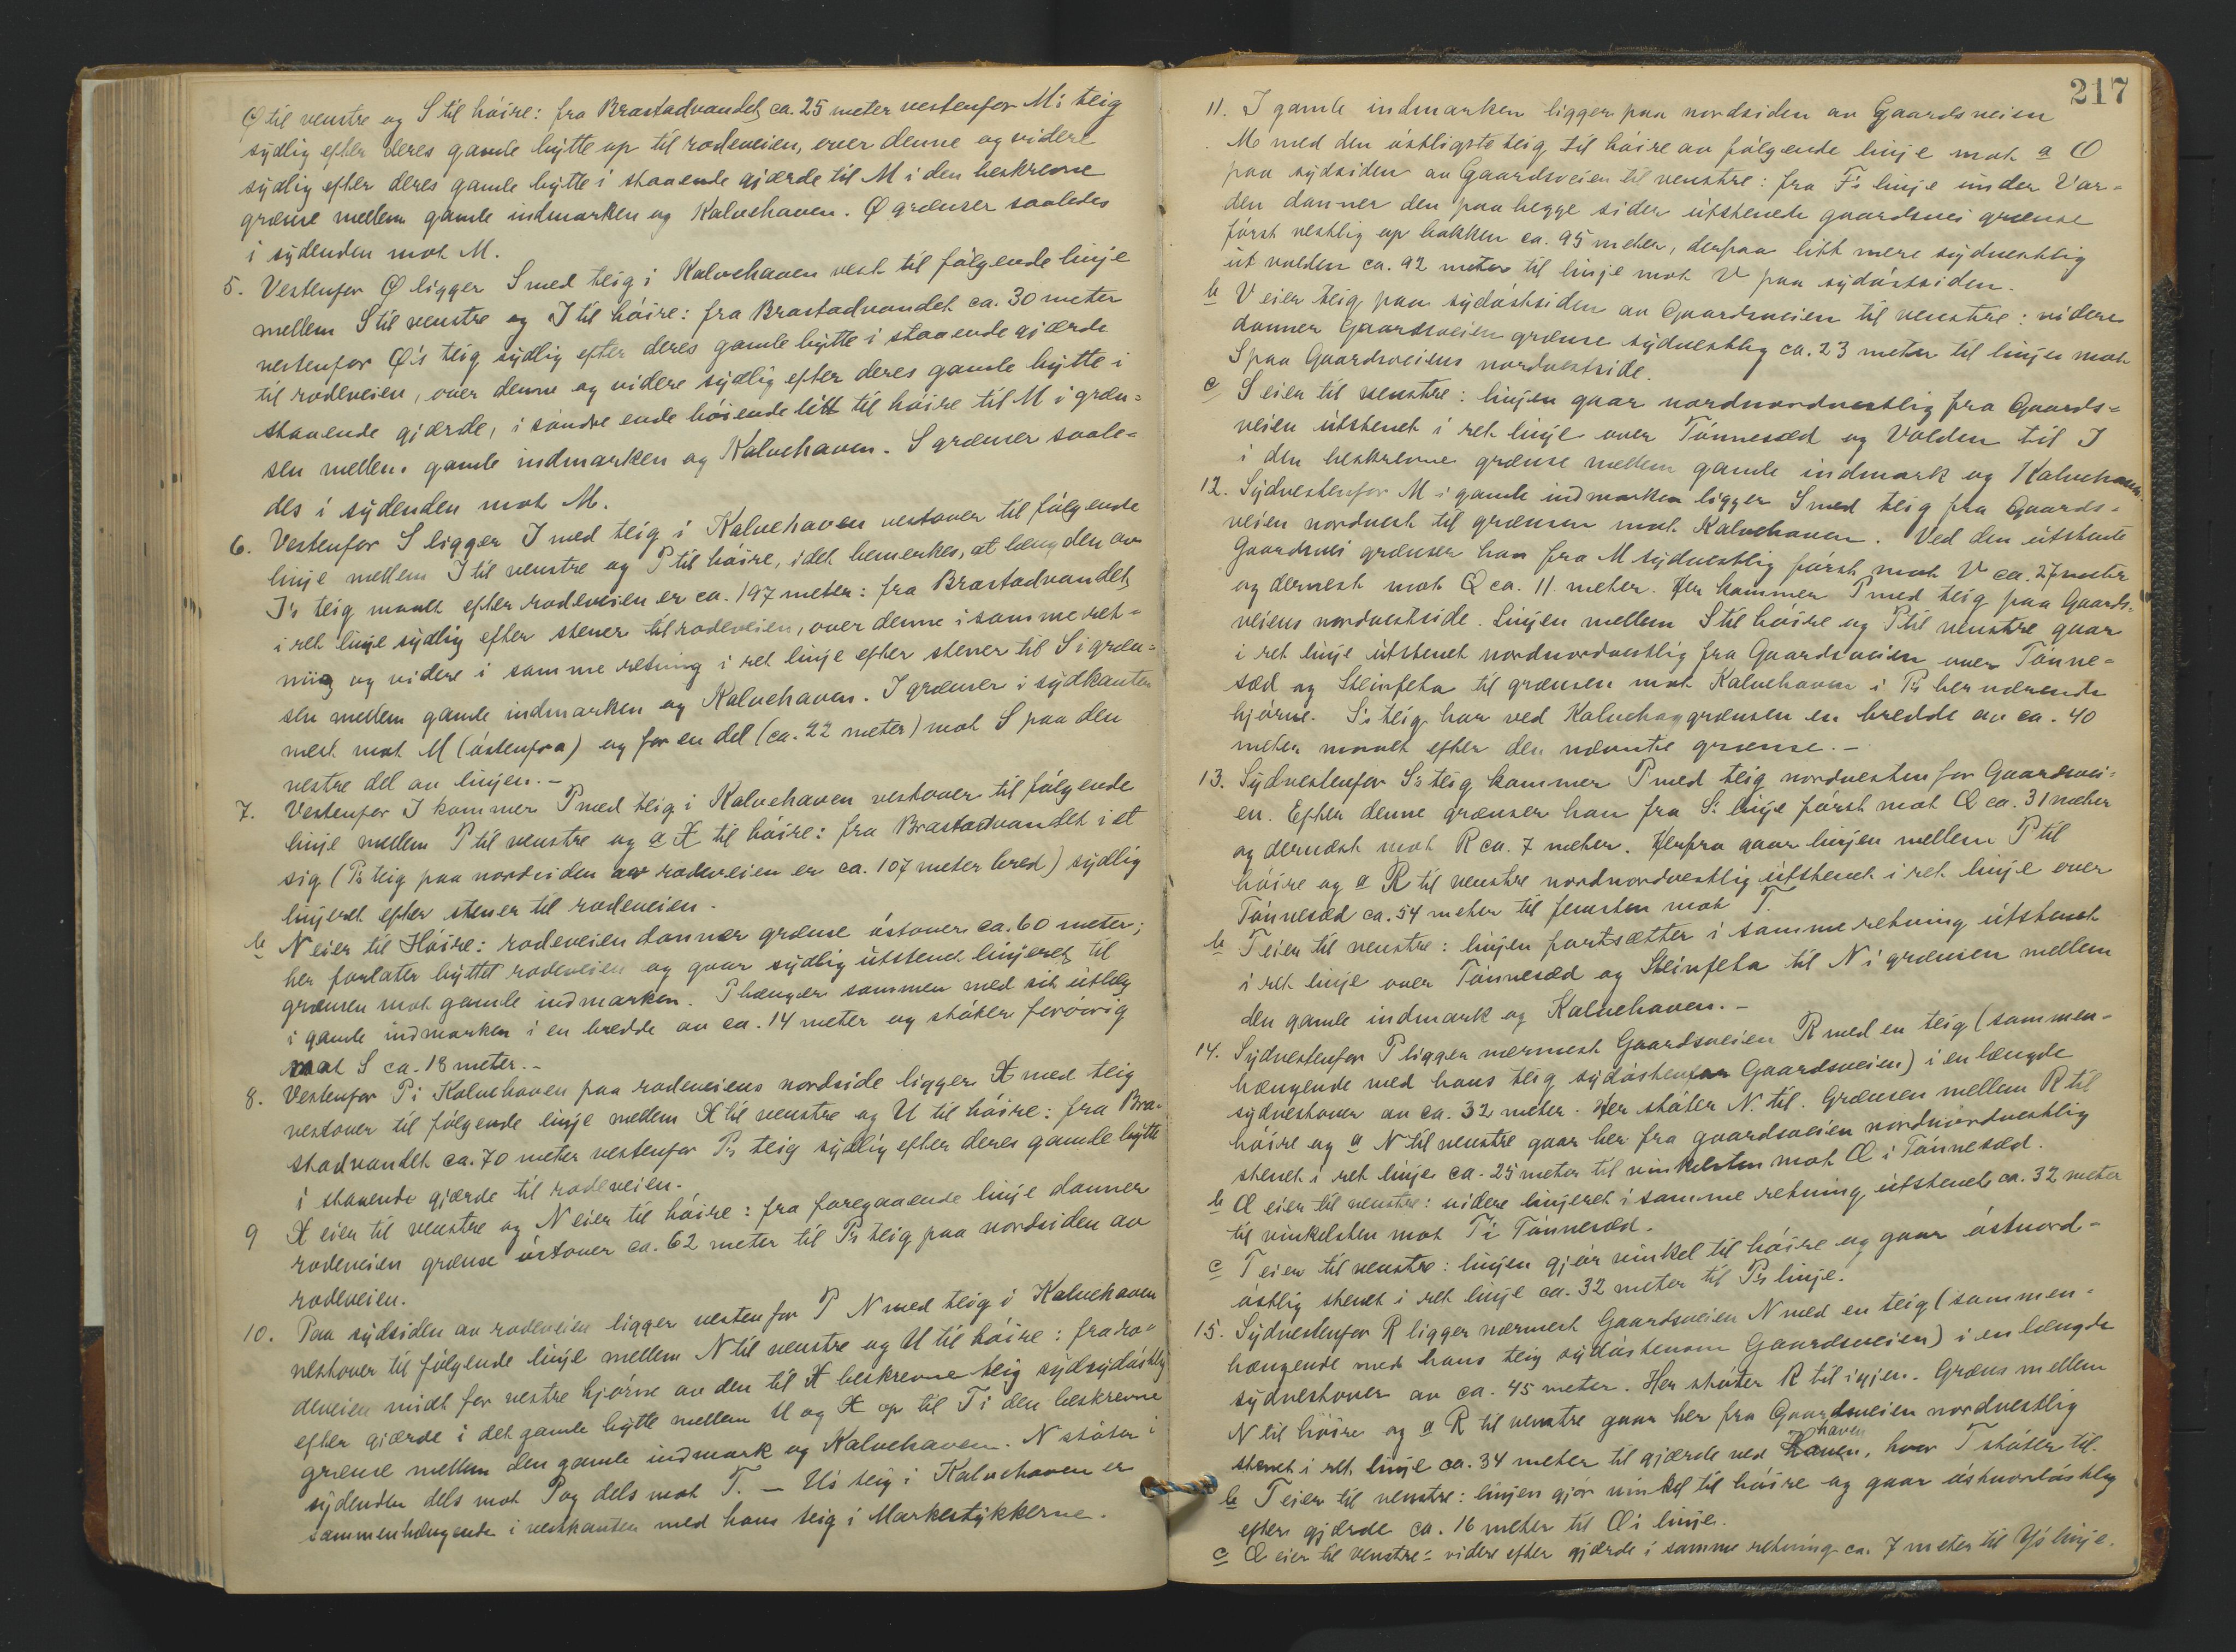 Q til venstre og S til høire: fra Brastadvandet ca. 25 meter vestenfor M's teig
sydlig efter deres gamle bytte op til rodeveien, over denne og videre
sydlig efter deres gamle bytte i staaende gjærde til M i den beskrevne
grænse mellem gamle indmarken og Kalvehaven. Q grænser saaledes
i sydenden mot M.
5. Vestenfor Q ligger S med teig i Kalvehaven vest til følgende linje
mellem S til venstre og I til høire: fra Brastadvandet ca. 30 meter
vestenfor Q's teig sydlig efter deres gamle bytte i staaende gjærde
til rodeveien, over denne og videre sydlig efter deres gamle bytte i
staaende gjærde, i søndre ende bøiende litt til høire til M i græn=
sen mellem gamle indmarken og Kalvehaven. S grænser saale=
des i sydenden mot M.
6. Vestenfor S ligger I med teig i Kalvehaven vestover til følgende
linje mellem I til venstre og P til høire, idet bemerkes, at længden av
I's teig maalt efter rodeveien er ca. 197 meter: fra Brastadvandet
i ret linje sydlig efter stener til rodeveien, over denne i samme ret=
ning og videre i samme retning i ret linje efter stener til S i græn=
sen mellem gamle indmarken og Kalvehaven. I grænser i sydkanten
mest mot M (østenfra) og for en del (ca. 22 meter) mot S paa den
vestre del av linjen.-
7. Vestenfor I kommer P med teig i Kalvehaven vestover til følgende
linje mellem P til venstre og a X til høire: fra Brastadvandet i et
sig (P's teig paa nordsiden av rodeveien er ca. 107 meter bred) sydlig
linjeret efter stener til rodeveien.
b N eier til Høire: rodeveien danner grænse østover ca. 60 meter;
her forlater byttet rodeveien og gaar sydlig utstenet linjeret til
grænsen mot gamle indmarken. P hænger sammen med sit utlæg
i gamle indmarken i en bredde av ca. 14 meter og støter forøvrig
mot S ca. 18 meter.-
8. Vestenfor P i Kalvehaven paa rodeveiens nordside ligger X med teig
vestover til følgende linje mellem X til venstre og U til høire: fra Bra=
stadvandet ca. 70 meter vestenfor P's teig sydlig efter deres gamle bytte
i staaende gjærde til rodeveien.
9 X eier til venstre og N eier til høire: fra foregaaende linje danner
rodeveien grænse østover ca. 62 meter til P's teig paa nordsiden av
rodeveien.
10. Paa sydsiden av rodeveien ligger vestenfor P N med teig i Kalvehaven
vestover til følgende linje mellem N til venstre og U til høire: fra ro=
deveien midt for vestre hjørne av den til X beskrevne teig sydsydøstlig
efter gjærde i det gamle bytte mellem U og X op til T i den beskrevne
grænse mellem den gamle indmark og Kalvehaven. N støter i
sydenden dels mot P og dels mot T. - U's teig i Kalvehaven er
sammenhængende i vestkanten med hans teig i Markestykkerne.
217
11. I gamle indmarken ligger paa nordsiden av Gaardsveien
M med den østligste teig til høire av følgende linje mot a O
paa sydsiden av Gaardsveien til venstre: fra F's linje under Var=
den danner den paa begge sider utstenete gaardsvei grænse
først vestlig op bakken ca. 95 meter, derpaa litt mere sydvestlig
ut volden ca. 92 meter til linje mot V paa sydøstsiden.
b V eier teig paa sydøstsiden av Gaardsveien til venstre: videre
danner Gaardsveien grænse sydvestlig ca. 23 meter til linjen mot
S paa Gaardsveiens nordvestside.
c S eier til venstre: linjen gaar nordnordvestlig fra Gaards=
veien utstenet i ret linje over Tønnesæd og Volden til I
i den beskrevne grænse mellem gamle indmark og Kalvehaven.
12. Sydvestenfor M i gamle indmarken ligger S med teig fra Gaards=
veien nordvest til grænsen mot Kalvehaven. Ved den utstenete
Gaardsvei grænser han fra M sydvestlig først mot V ca. 27 meter
og dernæst mot Q ca. 11 meter. Her kommer P med teig paa Gaards=
veiens nordvestside. Linjen mellem S til høire og P til venstre gaar
i ret linje utstenet nordnordvestlig fra Gaardsveien over Tønne=
sæd og Steinfeta til grænsen mot Kalvehaven i P's berværende
hjørne. S's teig har ved Kalvehaggrænsen en bredde av ca. 40
meter maalt efter den nævnte grænse.-
13. Sydvestenfor S's teig kommer P med teig nordvestenfor Gaardsvei=
en. Efter denne grænser han fra S's linje først mot Q ca. 31 meter
og dernæst mot R ca. 7 meter. Herfra gaar linjen mellem P til
høire og a R til venstre nordnordvestlig utstenet i ret linje over
Tønnesæd ca. 54 meter til femsten mot T.
b T eier til venstre: linjen fortsætter i samme retning utstenet
i ret linje over Tønnesæd og Steinfeta til N i grænsen mellem
den gamle indmark og Kalvehaven.-
14. Sydvestenfor P ligger nærmest Gaardsveien R med en teig (sammen=
hængende med hans teig sydøstenfor Gaardsveien) i en længde
sydvestover av ca. 32 meter. Her støter N. til. Grænsen mellem R til
høire og a N til venstre gaar her fra gaardsveien nordnordvestlig
stenet i ret linje ca. 25 meter til vinkelsten mot Q i Tønnesæd.
b Q eier til venstre: videre linjeret i samme retning utstenet ca. 32 meter
til vinkelsten mot T i Tønnesæd.
c T eier til venstre: linjen gjør vinkel til høire og gaar østnord-
østlig stenet i ret linje ca. 32 meter til P's linje.
15. Sydvestenfor R ligger nærmest Gaardsveien N med en teig (sammen=
hængende med hans teig sydøstenom Gaardsveien) i en længde
sydvestover av ca. 45 meter. Her støter R til igjen. Græns mellem
N til høire og a R til venstre gaar her fra Gaardsveien nordvestlig
stenet i ret linje ca. 34 meter til gjærde ved haven, hvor T støter til.
b T eier til venstre: linjen gjør vinkel til høire og gaar østnordøstlig
efter gjærde ca. 16 meter til Q's linje.
c Q eier til venstre: videre efter gjærde i samme retning ca. 7 meter til Y's linje.